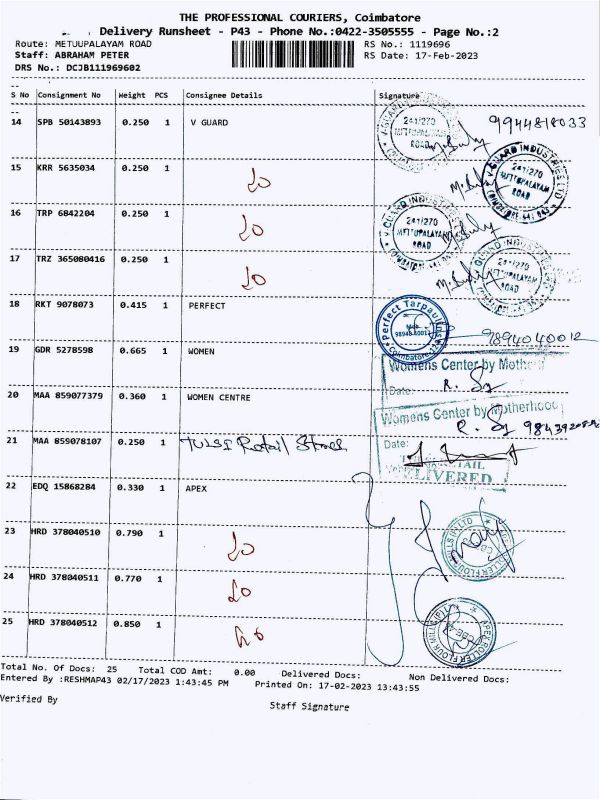 THE PROFESSIONAL COURIERS, Coimbatore
Delivery Runsheet - P43 - Phone No.:0422-3505555 - Page No.:2
Route: METUUPALAYAM ROAD RS No.: 1119696
Staff: ABRAHAM PETER RS Date: 17-Feb-2023
DRS No.: DCJB111969602
S No Consignment No Weight PCS Consignee Details Signature
14 SPB 50143893 0.250 1 V GUARD 9944818033
241/270
METTUPALAYAM
ROAD
15 KRR 5635034 0.250 1
V GUARD INDUSTRIES LTD
241/270
METTUPALAYAM
ROAD
16 TRP 6842204 0.250 1
241/270
METTUPALAYAM
ROAD
17 TRZ 365080416 0.250 1
241/270
METTUPALAYAM
ROAD
18 RKT 9078073 0.415 1 PERFECT 9894040012
Perfect Tarpaulins
Coimbatore
19 GDR 5278598 0.665 1 WOMEN
Womens Center by Mother
Date:
20 MAA 859077379 0.360 1 WOMEN CENTRE
Womens Center by Motherhood
Date:
21 MAA 859078107 0.250 1 TULSI Retail Stores
DELIVERED
22 EDQ 15868284 0.330 1 APEX
23 HRD 378040510 0.790 1
24 HRD 378040511 0.770 1
25 HRD 378040512 0.850 1
Total No. Of Docs: 25 Total COD Amt: 0.00 Delivered Docs: Non Delivered Docs:
Entered By :RESHMAP43 02/17/2023 1:43:45 PM Printed On: 17-02-2023 13:43:55
Verified By Staff Signature